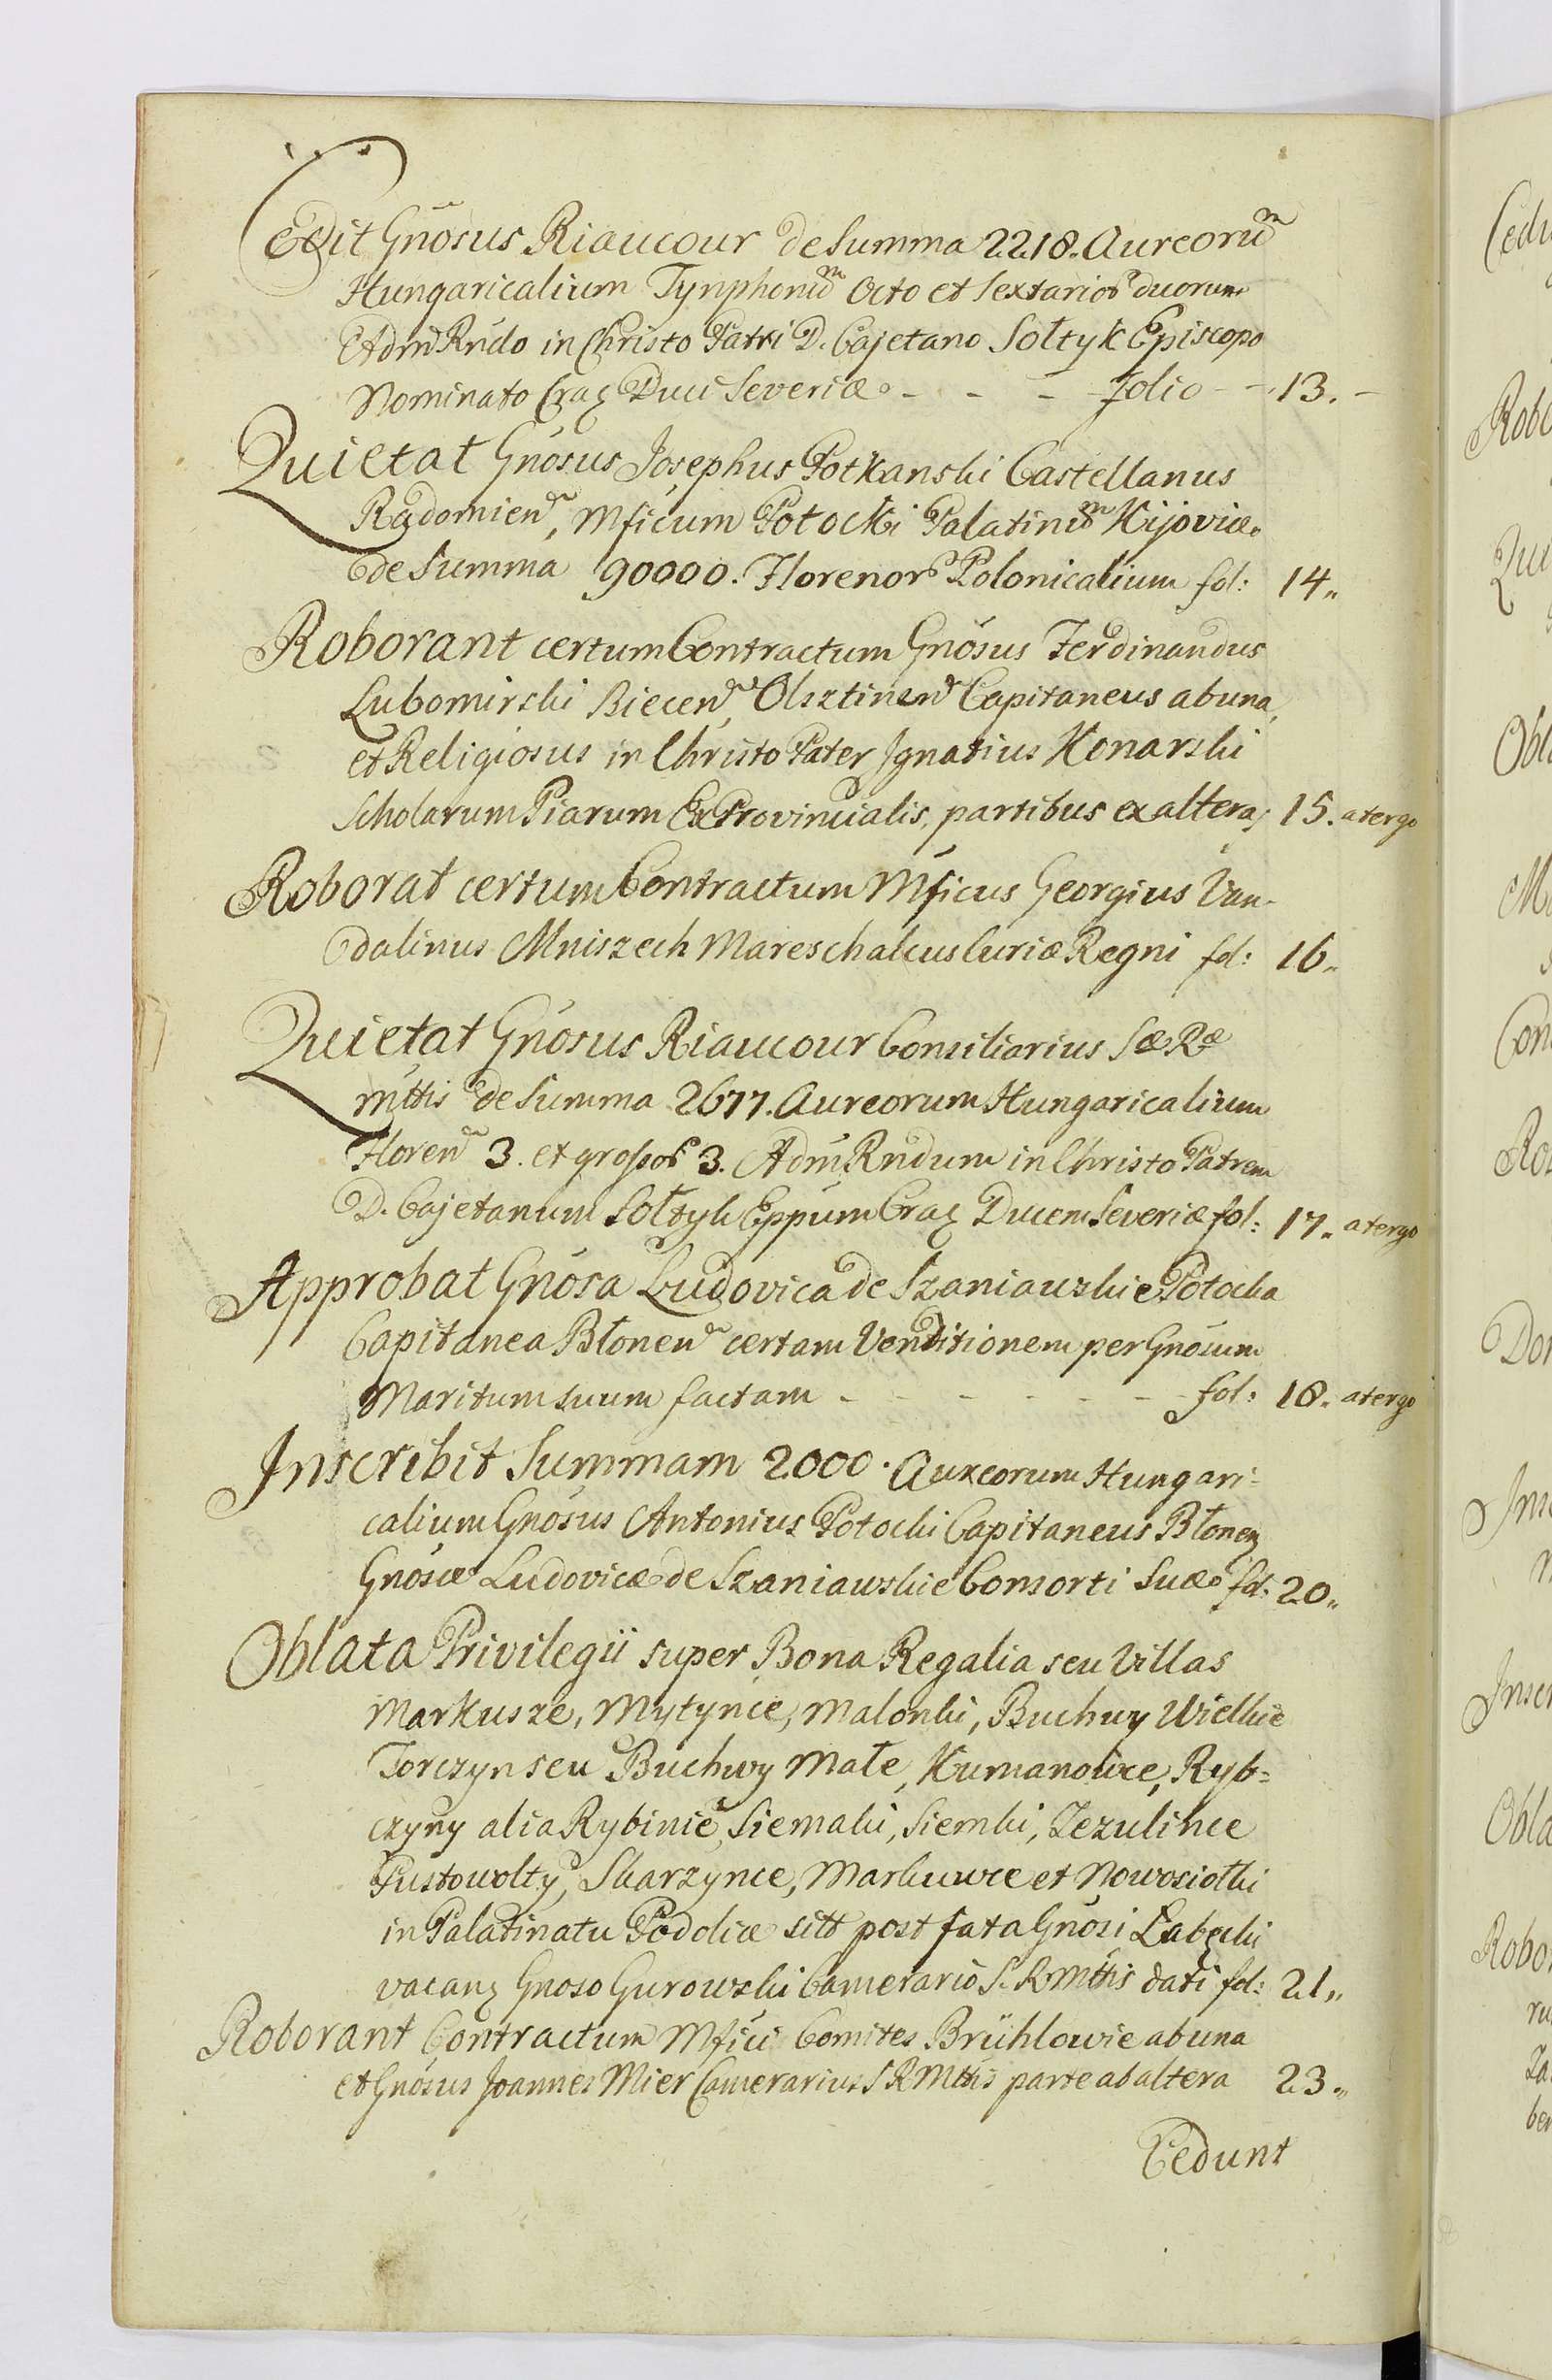 Cedit Gnosus Riaucour de Summa 2218. Aureorum
Hungaricalium Tynphonum Octo et Sextarior duorum
Adm Rndo in Christo Patri D. Cajetano Sołtyk Episcopo
Nominato Crac Duci Severiæ - - - folio - - 13. -
Quietat Gnosus Josephus Potkanski Castellanus
Radomien, Mficum Potocki Palatinum Kijoviæ
de Summa 90000. Florenor Polonicalium fol: 14,,
Roborant certum Contractum Gnosus Ferdinandus
Lubomirski Biecen, Olsztinen Capitaneus ab una,
et Religiosus in Christo Pater Ignatius Konarski
Scholarum Piarum Ex Provincialis, partibus ex altera, 15. a tergo
Roborat certum Contractum Mficus Georgius Van-
dalinus Mniszech Mareschalcus Curiæ Regni fol: 16,,
Quietat Gnosus Riaucour Consiliarius Sæ Ræ
Mttis de Summa 2677. Aureorum Hungaricalium
Floren 3. et grossor 3. Adm Rndum in Christo Patrem
D. Cajetanum Sołtyk Eppum Crac Ducem Severiæ fol: 17,, a tergo
Approbat Gnosa Ludovica de Szaniawskie Potocka
Capitanea Błonen certam Venditionem per Gnosum
Maritum suum factam - - - - - - fol: 18,, a tergo
Inscribit Summam 2000. Aureorum Hungari-
calium Gnosus Antonius Potocki Capitaneus Błonen
Gnosæ Ludovicæ de Szaniawskie Consorti Suæ fol: 20,,
Oblata Privilegii super Bona Regalia seu Villas
Markusze, Mytynce, Malonki, Buchwy Wielkie
Torczyn seu Buchwy Małe, Kumanowce, Ryb-
czyny alia Rybinie, Siemaki, Siemki, Jezulince
Pustowolty, Skarzynce, Markuwce et Nowosiołki
in Palatinatu Podoliæ sitt post fata Gnosi Łabęcki
vacanz Gnoso Gurowski Camerario S. R Mttis dati fol: 21,,
Roborant Contractum Mfici Comites Brühlowie ab una
et Gnosus Joannes Mier Camerarius S R Mttis parte ab altera 23,,
Cedunt